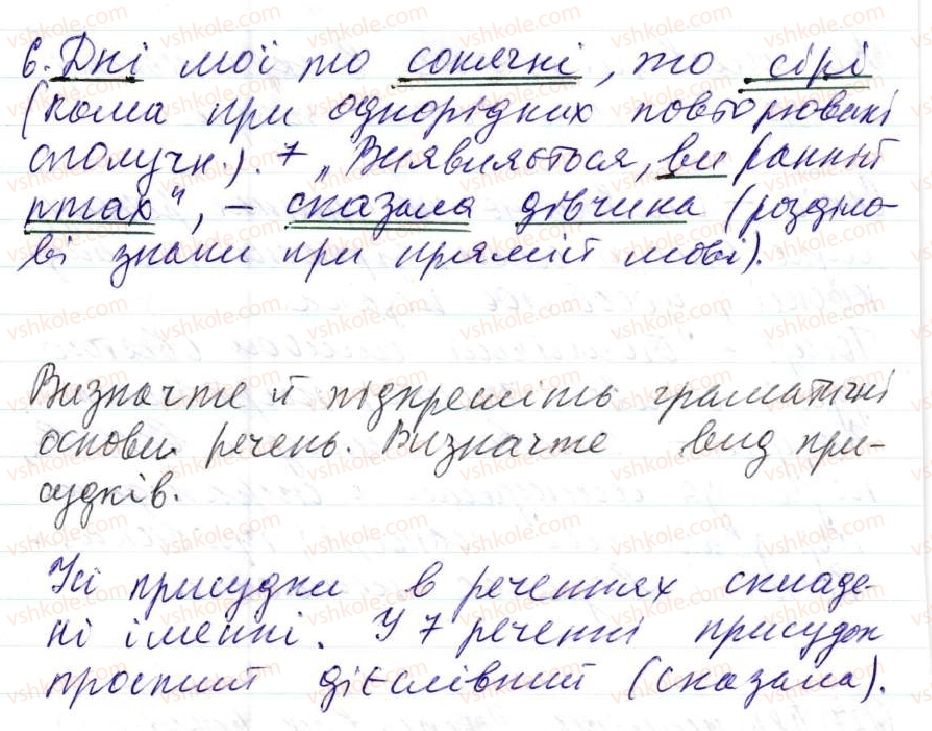 6. Дні мої то сонячні, то сірі
(кома при однорідних повторювані
сполучн.). 7 „Виявляється, ви ранній
птах", – сказала дівчина (розділо-
ві знаки при прямій мові).
Визначте й підкресліть граматичні
основи речень. Визначте вид при-
судків.
Усі присудки в реченнях складе-
ні іменні. У 7 реченні присудок
простий дієслівний (сказала).